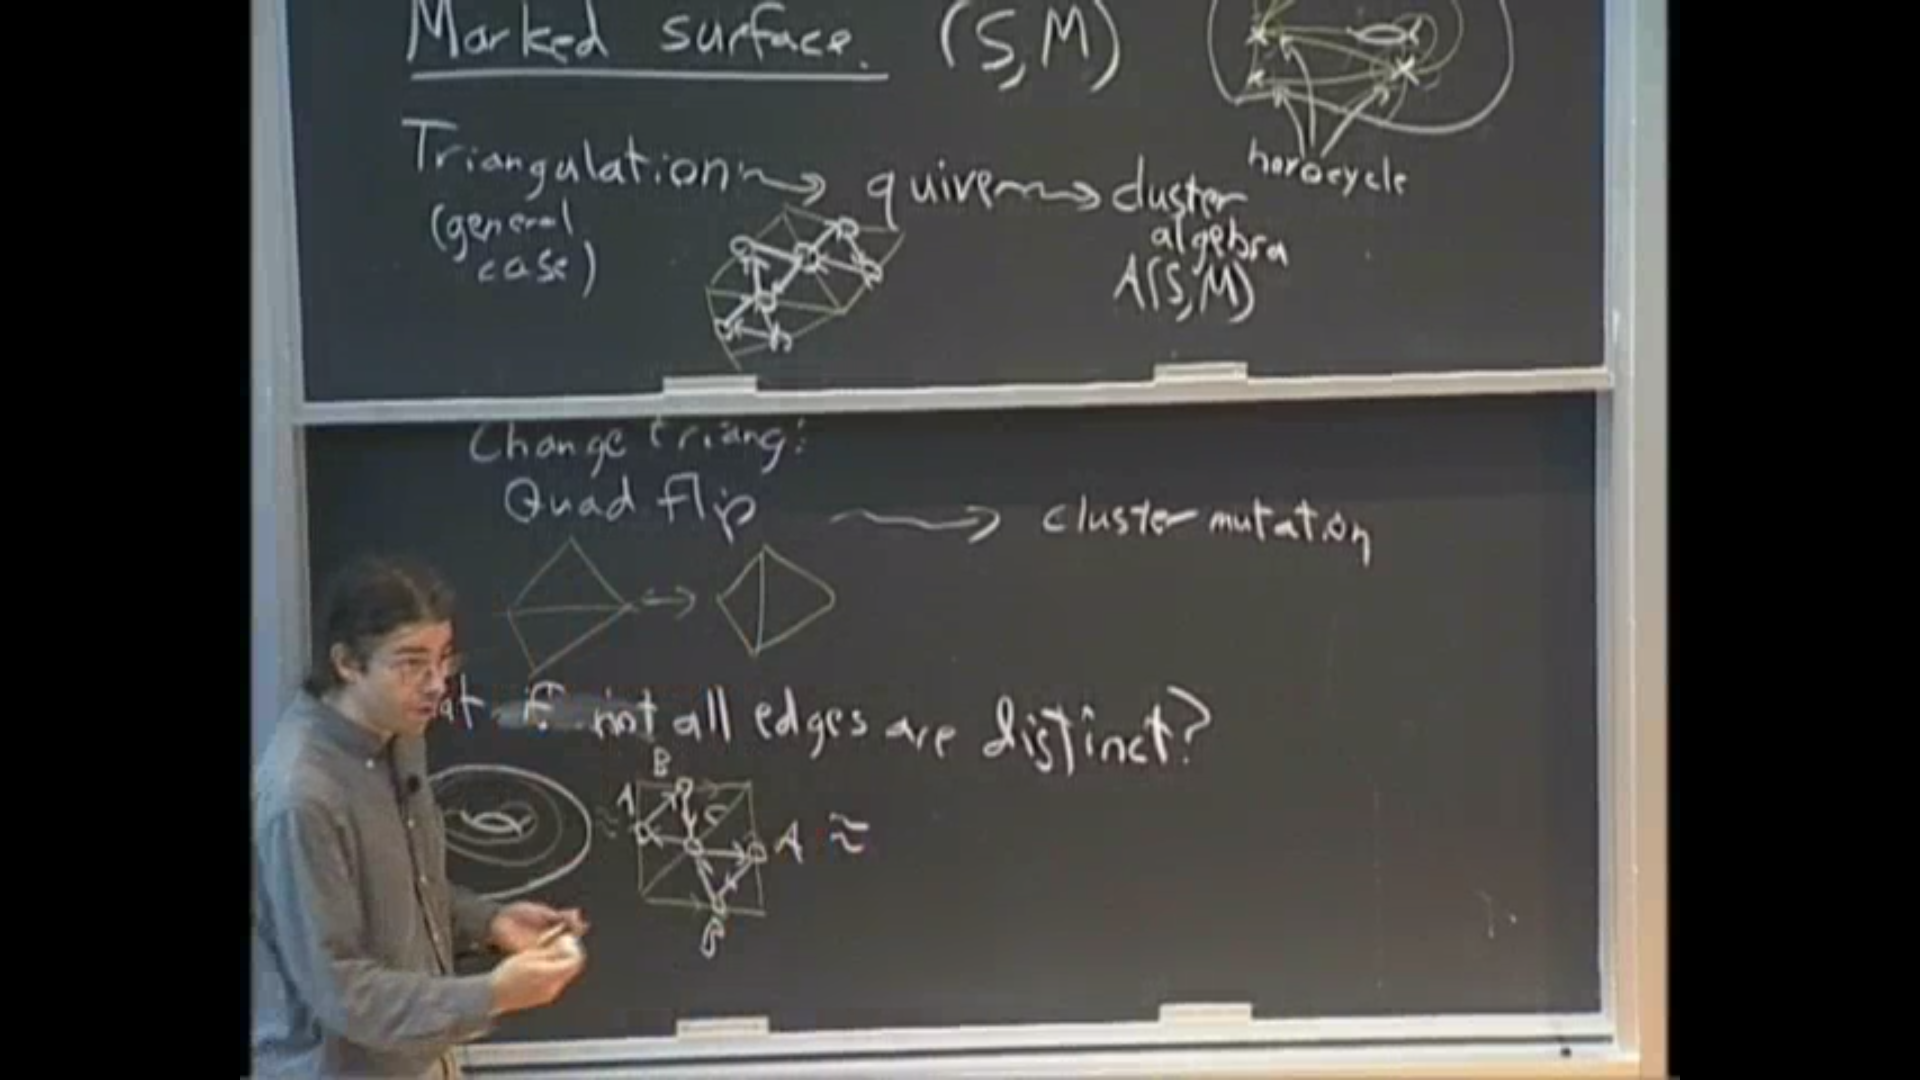 Marked surface. (S,M)
horocycle
Triangulation → quiver → cluster
algebra
A(S,M)
(general
case)
Change triang:
Quad flip → cluster mutation
↔
if not all edges are distinct?
B
A C
≈ A ≈
B